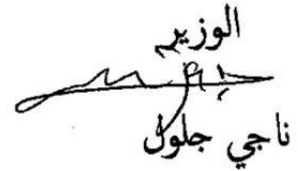 الوزير
ناجي جلول